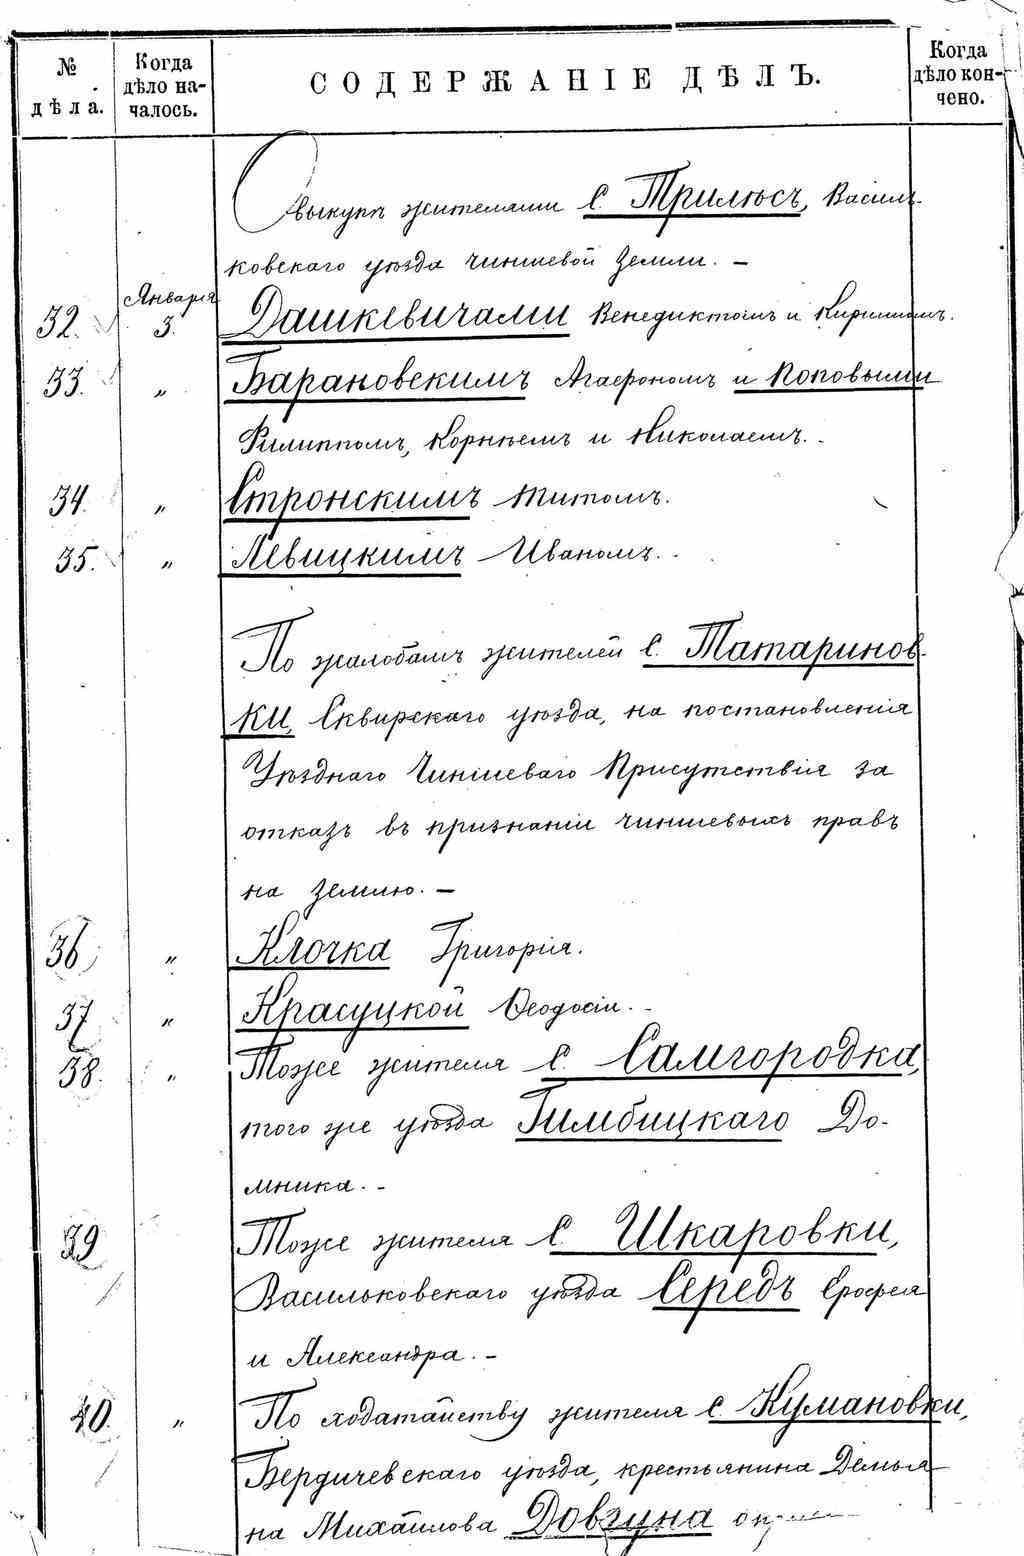 № дѣла.
Когда дѣло началось.
СОДЕРЖАНІЕ ДѢЛЪ.
Когда дѣло кончено.
О выкупѣ жителями с. Трилѣсъ, Василь-
ковскаго уѣзда чиншевой земли. –
32. Января 3. Дашкевичами Венедиктомъ и Кирилломъ.
33. „ Барановскимъ Агафономъ и Поповыми
Филиппомъ, Корнѣемъ и Николаемъ. -
34. „ Стронскимъ Титомъ.
35. „ Левицкимъ Иваномъ. -
По жалобамъ жителей с. Татаринов-
ки, Сквирскаго уѣзда, на постановленія
Уѣзднаго Чиншеваго Присутствія за
отказъ въ признаніи чиншевыхъ правъ
на землю. –
36 „ Клочка Григорія.
37 „ Красуцкой Ѳеодосіи. -
38. „ Тоже жителя с. Самгородка,
того же уѣзда Гимбицкаго До-
мника. -
39 Тоже жителя с. Шкаровки,
Васильковскаго уѣзда Середъ Ерофея
и Александра. -
40. „ По ходатайству жителя с. Кумановки,
Бердичевскаго уѣзда, крестьянина Демья-
на Михайлова Довгуна